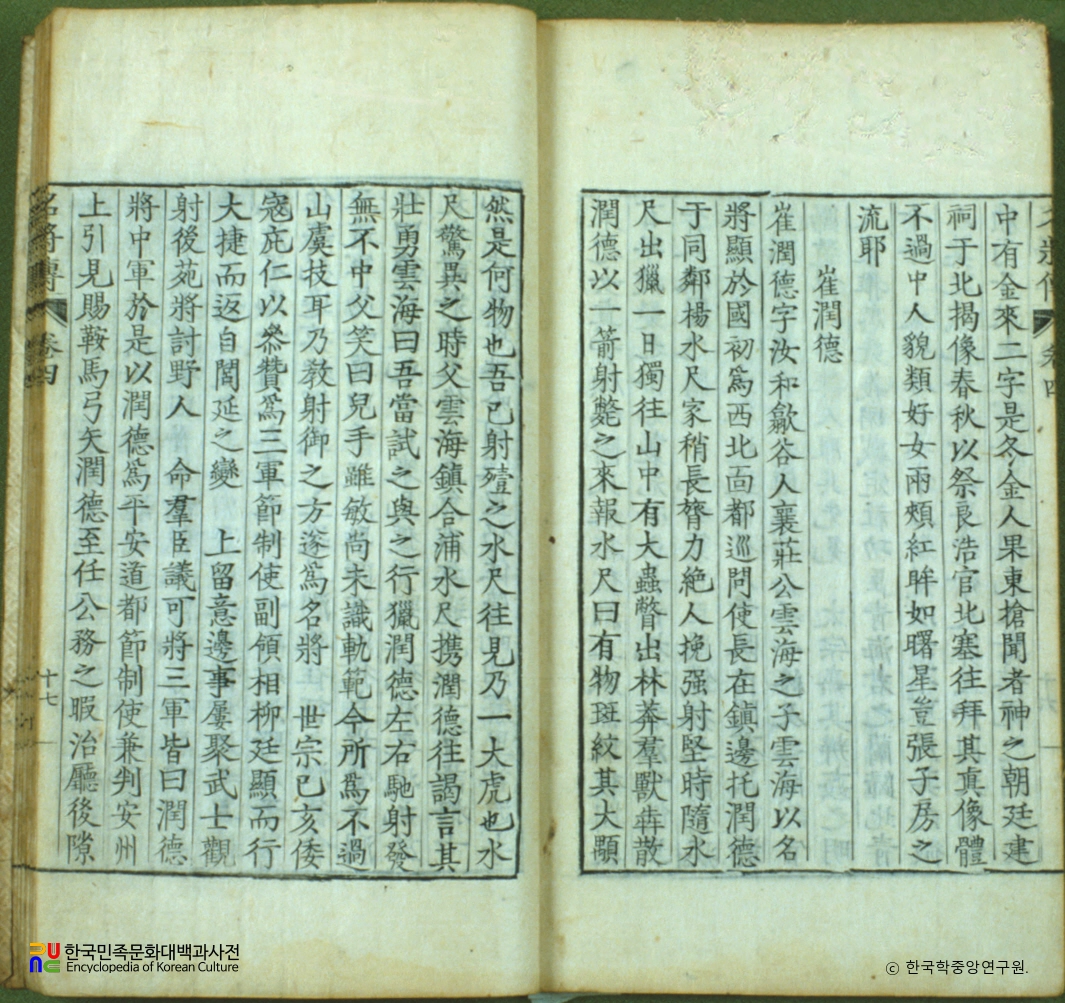 中有金來二字是冬金人果東搶聞者神之朝廷建
祠于北揭像春秋以祭良浩官北塞往拜其真像體
不過中人貌類好女兩頰紅眸如曙星豈張子房之
流耶
崔潤德
崔潤德字汝和歙谷人襄莊公雲海之子雲海以名
將顯於國初爲西北面都巡問使長在鎮邊托潤德
于同鄰楊水尺家稍長膂力絶人挽强射堅時隨水
尺出獵一日獨往山中有大蟲瞥出林莽羣獸犇散
潤德以一箭射斃之來報水尺曰有物斑紋其大顒
然是何物也吾已射殪之水尺往見乃一大虎也水
尺驚異之時父雲海鎮合浦水尺携潤德往謁言其
壯勇雲海曰吾當試之與之行獵潤德左右馳射發
無不中父笑曰兒手雖敏尚未識軌範今所爲不過
山虞技耳乃敎射御之方遂爲名將 世宗已亥倭
寇庇仁以叅贊爲三軍節制使副領相柳廷顯而行
大捷而返自閭延之變 上留意邊事屢聚武士觀
射後苑將討野人 命羣臣議可將三軍皆曰潤德
將中軍於是以潤德爲平安道都節制使兼判安州
上引見賜鞍馬弓矢潤德至任公務之暇治廳後隙
名將傳 卷四
十七
한국민족문화대백과사전
Encyclopedia of Korean Culture
ⓒ 한국학중앙연구원.